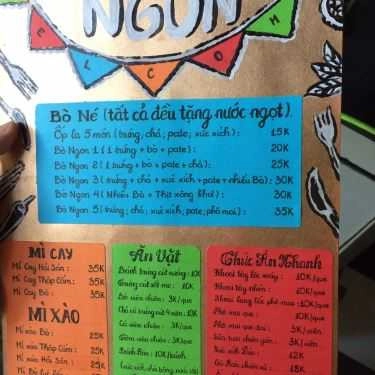 NGON
WELCOM
Bò Né (tất cả đều tặng nước ngọt).
Ốp la 5 món (trứng, chả, pate, xúc xích): 15K
Bò Ngon 1 (1 trứng + bò + pate): 20K
Bò Ngon 2 (1 trứng + bò + pate + chả): 25K
Bò Ngon 3 (trứng + chả + xúc xích + pate + nhiều Bò): 30K
Bò Ngon 4 (Nhiều Bò + Thịt xông khói): 30K
Bò Ngon 5 (trứng, chả, xúc xích, pate, phô mai): 35K
MÌ CAY
Mì Cay Hải Sản: 35K
Mì Cay Thập Cẩm: 35K
Mì Cay Bò: 35K
MÌ XÀO
Mì xào Bò: 25K
Mì xào Thập Cẩm: 25K
Mì xào Hải Sản: 25K
25K
Ăn Vặt
Bánh tráng cút nướng: 10K
Trứng cút sốt me: 10K
Bò viên chiên: 3K/que
Chả cá trứng cút 4 viên: 10K
Cá viên chiên: 3K/que
Tôm viên chiên: 3K/que
Bánh Bao: 10K/bánh
Thức Ăn Nhanh
Khoai tây lốc xoáy: 10K/que
Khoai tây chiên: 10K
Khoai lang lắc phô mai: 10K
Phô mai que: 10K/que
Phô mai que dai: 3K/que
3K/que
Xúc xích Đức: 12K
18K